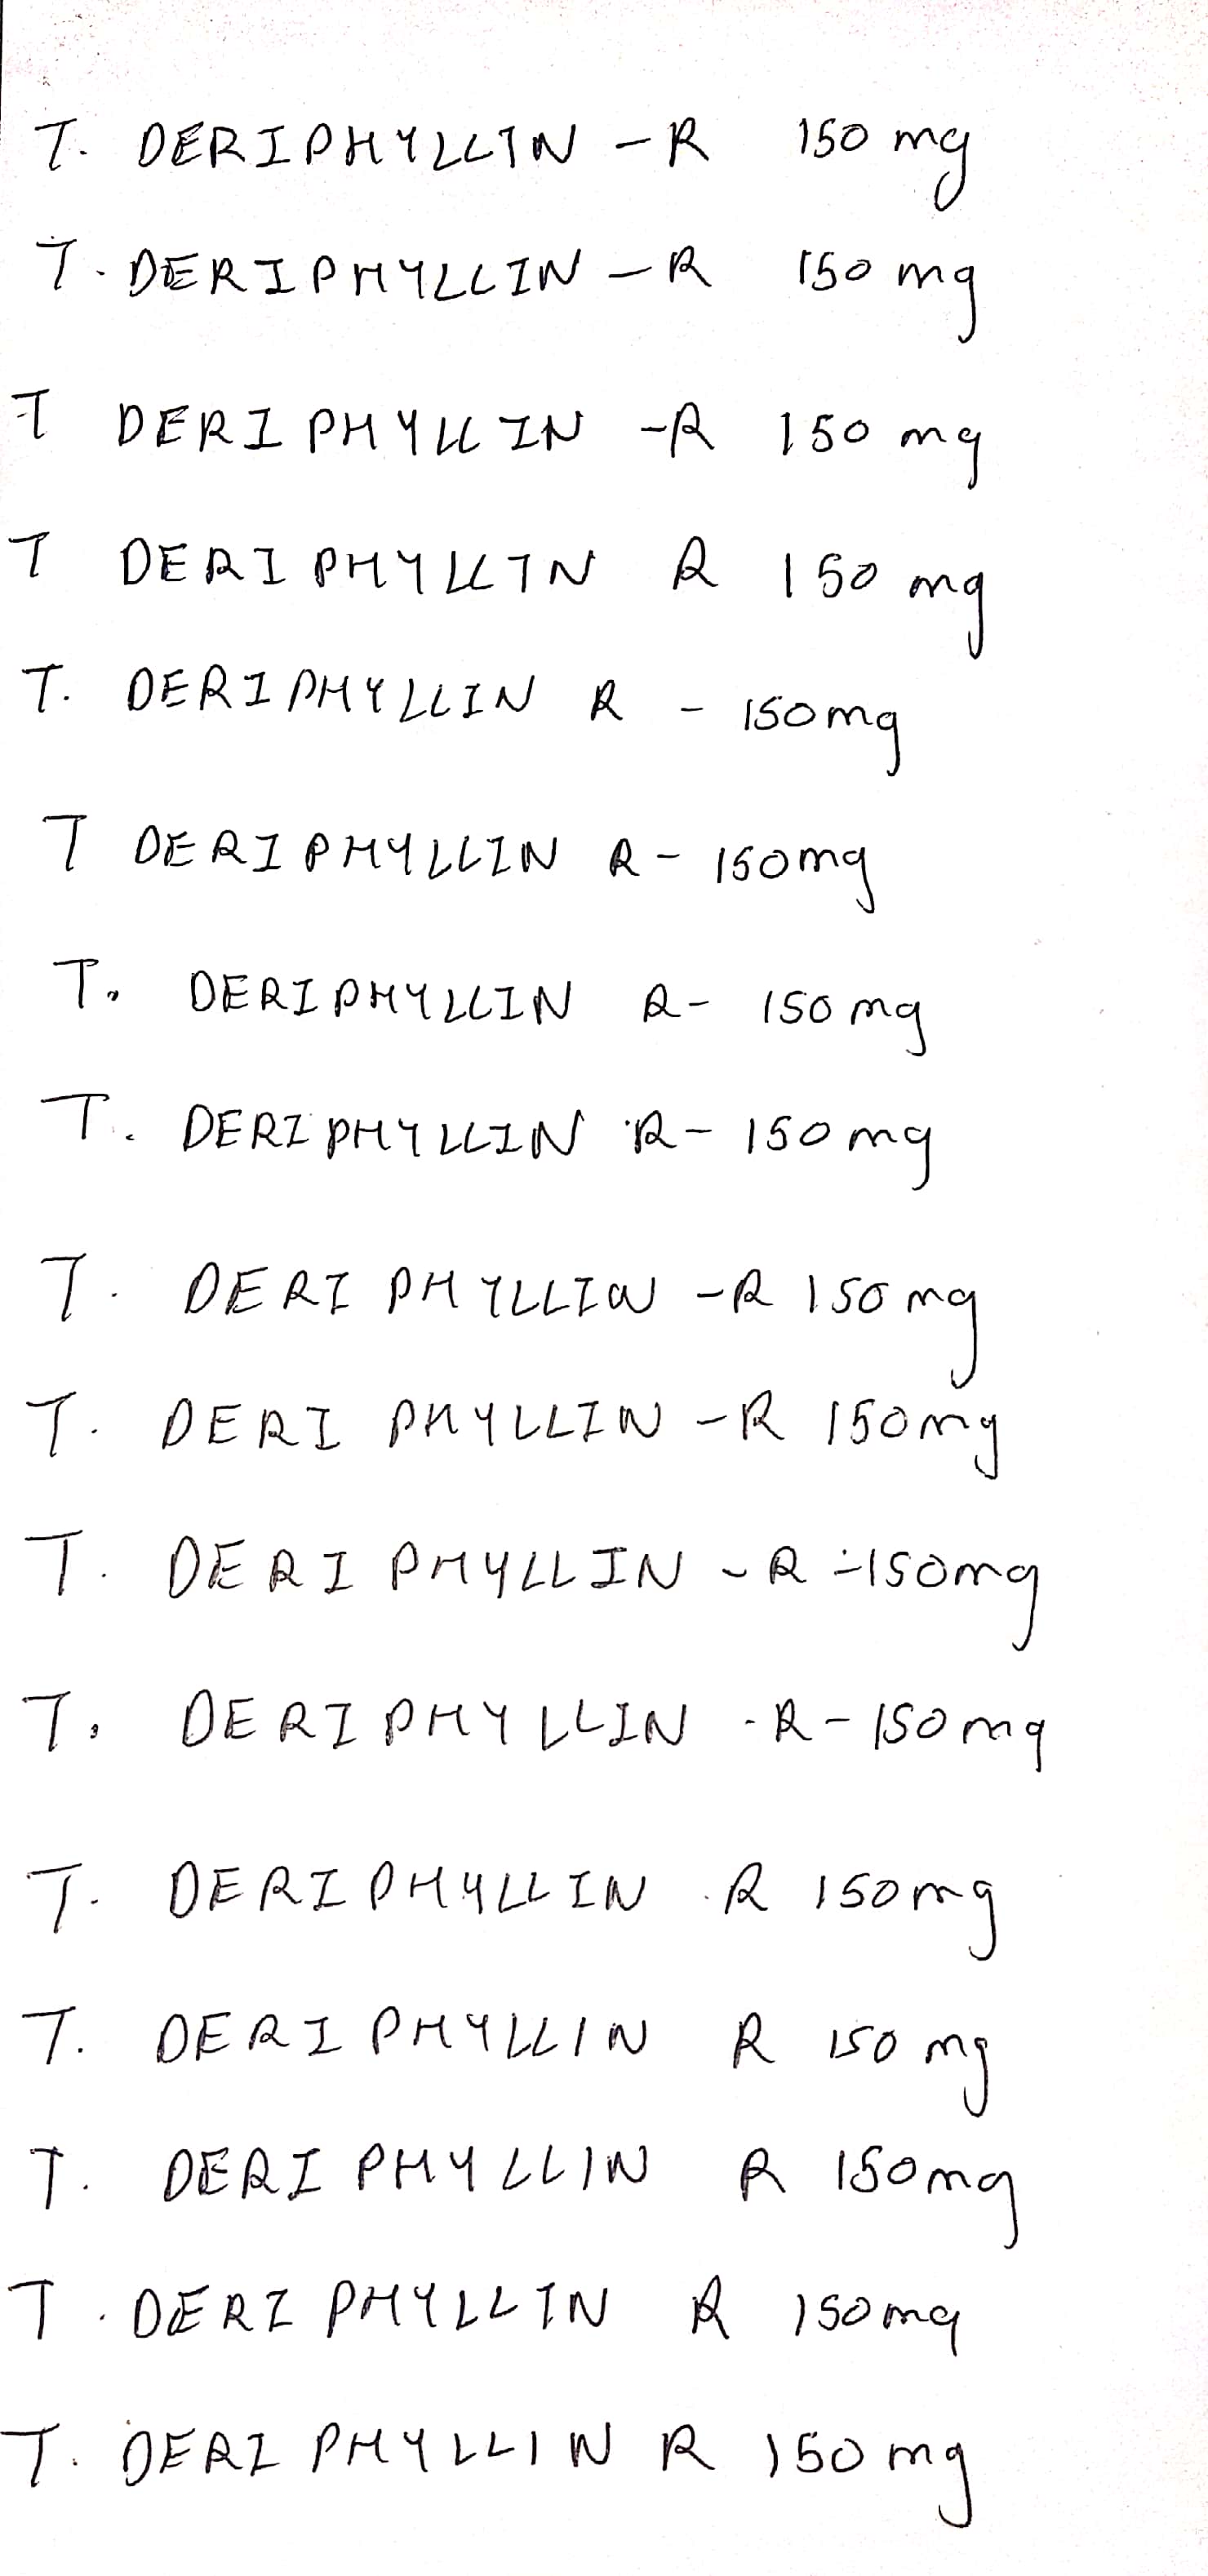 T. DERIPHYLLIN -R 150 mg
T. DERIPHYLLIN -R 150 mg
T DERIPHYLLIN -R 150 mg
T DERIPHYLLIN R 150 mg
T. DERIPHYLLIN R - 150mg
T DERIPHYLLIN R- 150mg
T. DERIPHYLLIN R- 150 mg
T. DERIPHYLLIN R- 150 mg
T. DERI PHYLLIN -R 150 mg
T. DERI PHYLLIN -R 150mg
T. DERI PHYLLIN -R -150mg
T. DERIPHYLLIN -R- 150 mg
T. DERIPHYLLIN R 150mg
T. DERI PHYLLIN R 150 mg
T. DERI PHYLLIN R 150mg
T. DERI PHYLLIN R 150mg
T. DERI PHYLLIN R 150 mg